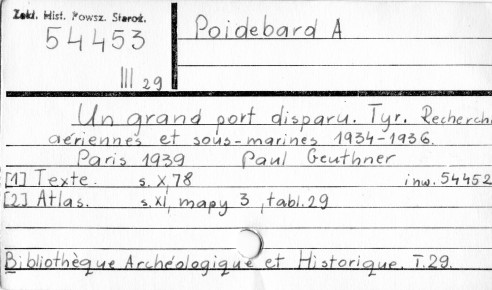 Zakł. Hist. Powsz. Staroż.
54453
III 29
Poidebard A
Un grand port disparu. Tyr. Recherch
aériennes et sous-marines 1934-1936.
Paris 1939 Paul Geuthner
[1] Texte. s. X, 78 inw. 54452
[2] Atlas. s. XI, mapy 3, tabl. 29
Bibliothèque Archéologique et Historique. T. 29.